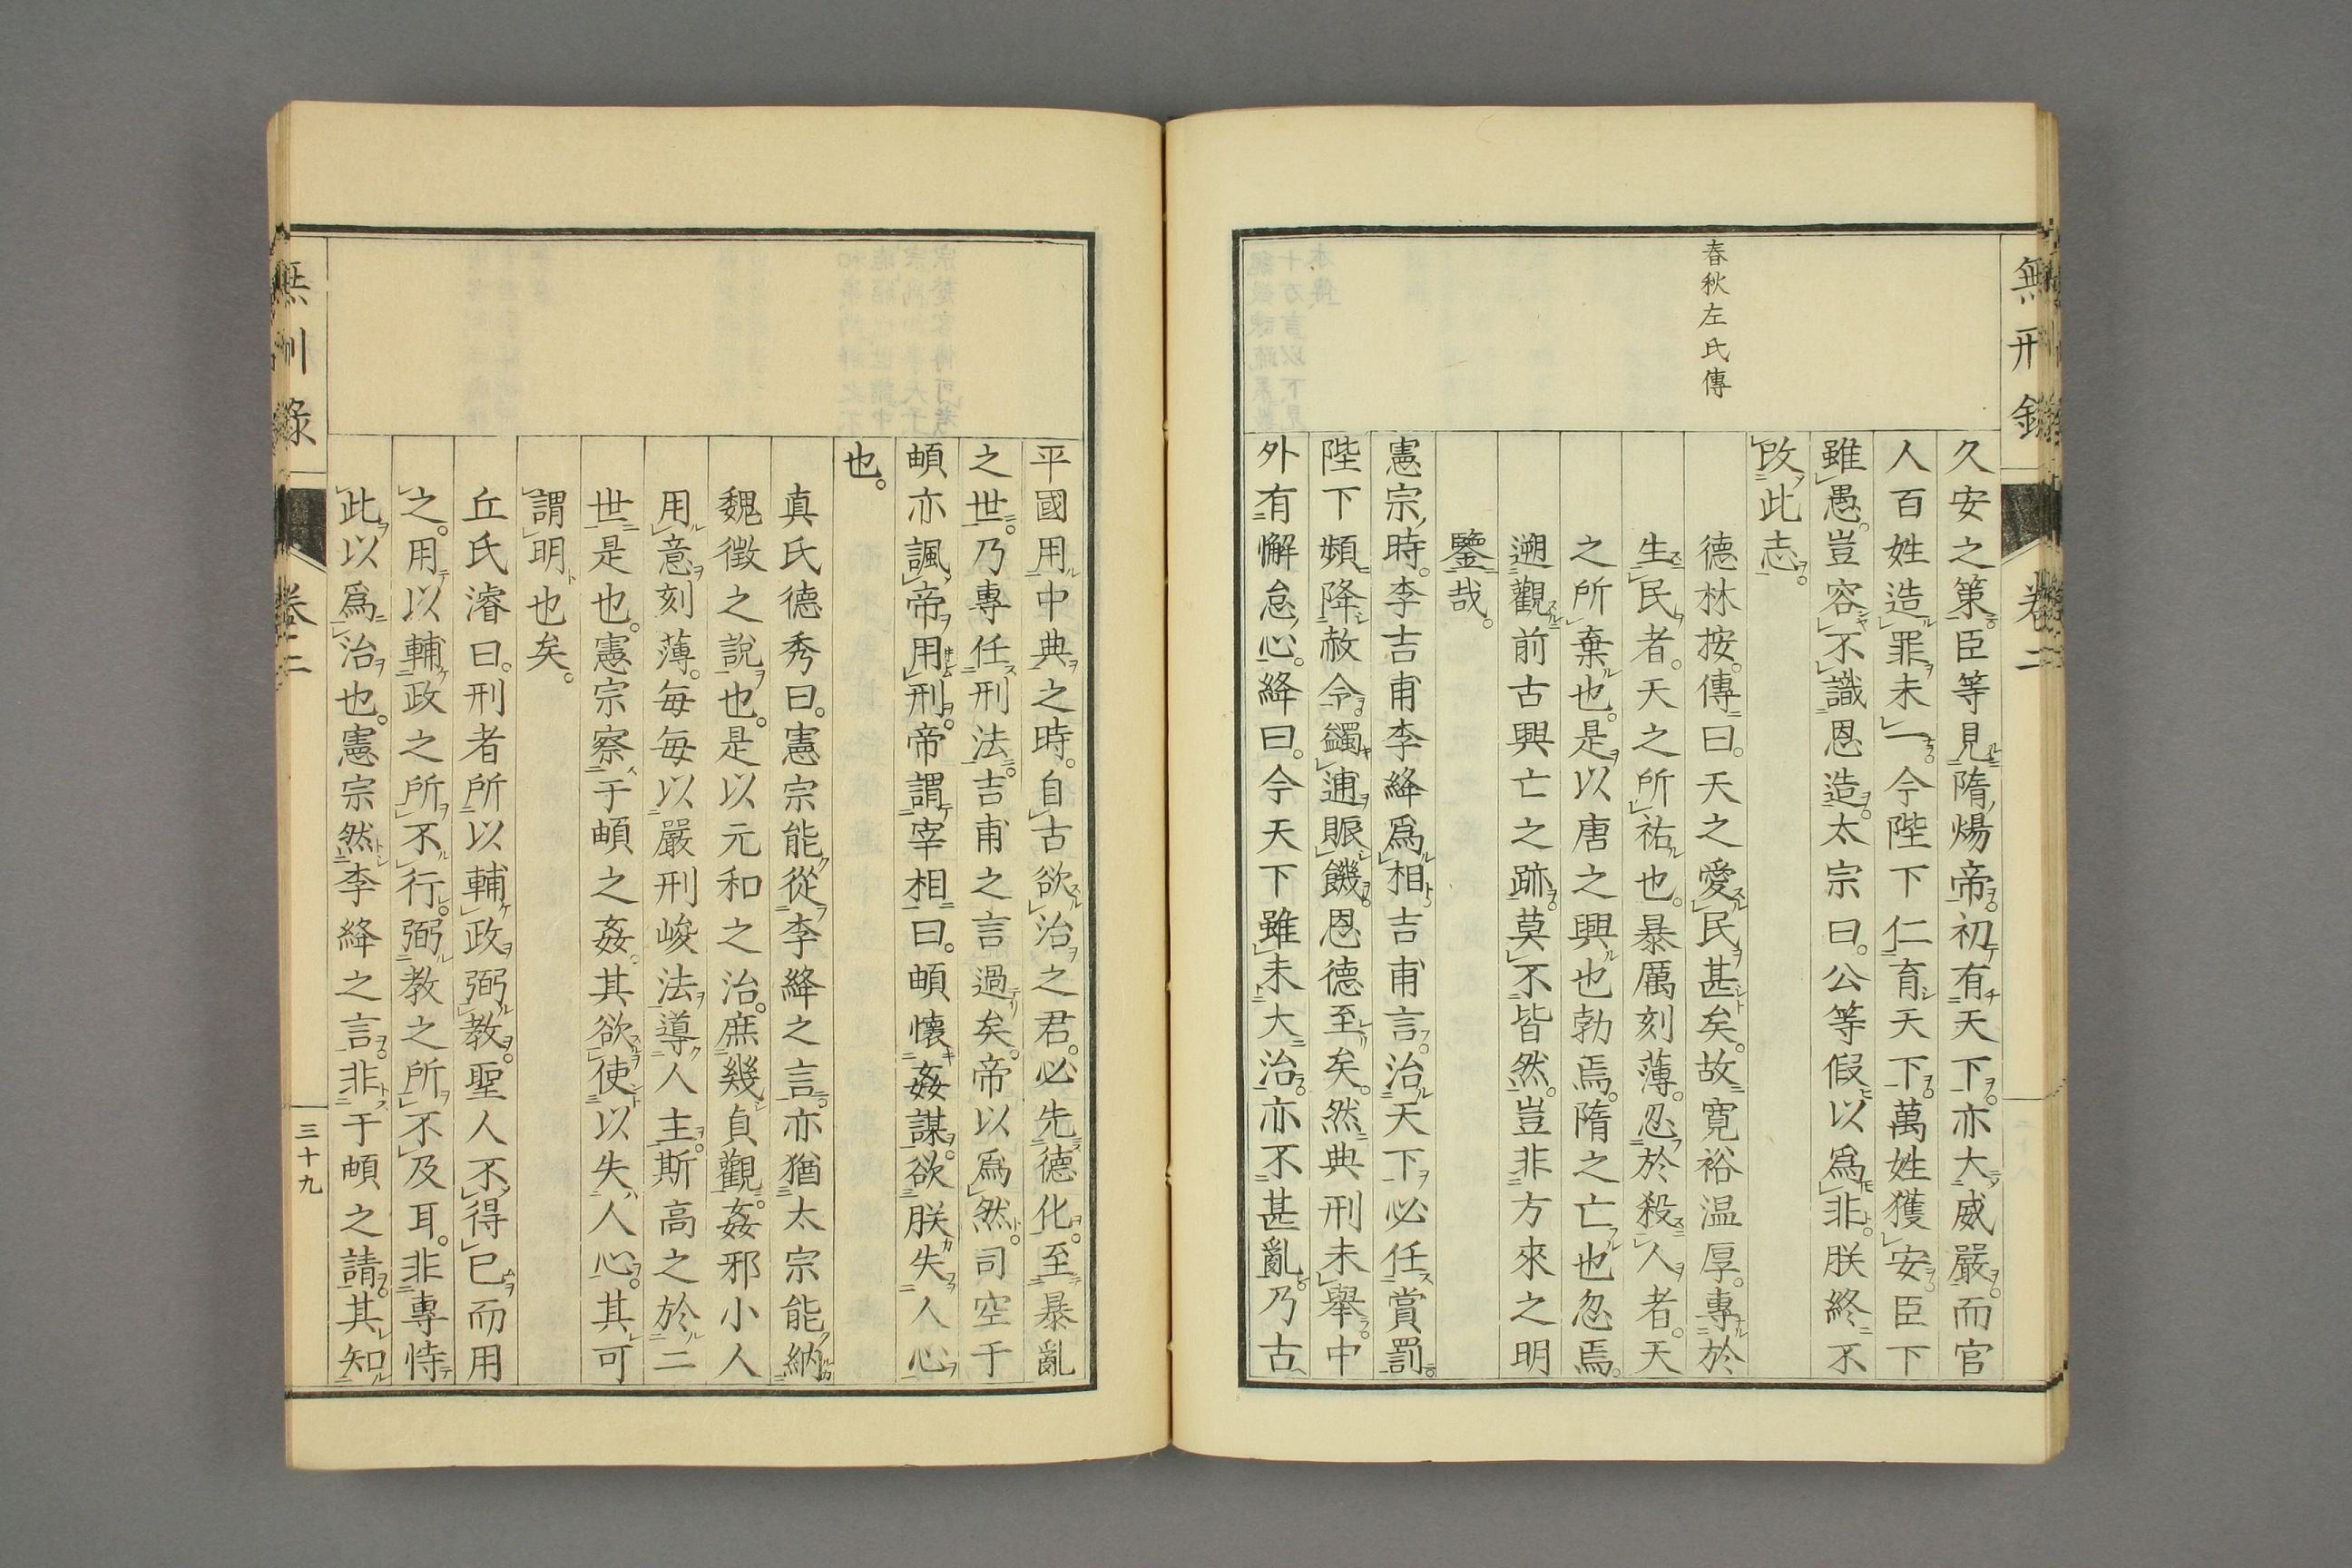 無刑録
卷二
久安之策臣等見隋煬帝初有天下亦大威嚴而官
人百姓造罪未一今陛下仁育天下萬姓獲安臣下
雖愚豈容不識恩造太宗曰公等假以爲非朕終不
改此志
春秋左氏傳
德林按傳曰天之愛民甚矣故寛裕温厚專於
生民者天之所祐也暴厲刻薄忍於殺人者天
之所棄也是以唐之興也勃焉隋之亡也忽焉
遡觀前古興亡之跡莫不皆然豈非方來之明
鑒哉
憲宗時李吉甫李絳爲相吉甫言治天下必任賞罰
陛下頻降赦令蠲逋賑饑恩德至矣然典刑未舉中
外有懈怠心絳曰今天下雖未大治亦不甚亂乃古
平國用中典之時自古欲治之君必先德化至暴亂
之世乃專任刑法吉甫之言過矣帝以爲然司空于
頔亦諷帝用刑帝謂宰相曰頔懷姦謀欲朕失人心
也。
真氏德秀曰憲宗能從李絳之言亦猶太宗能納
魏徵之說也是以元和之治庶幾貞觀姦邪小人
用意刻薄毎毎以嚴刑峻法導人主斯高之於二
世是也憲宗察于頔之姦其欲使以失人心其可
謂明也矣
丘氏濬曰刑者所以輔政弼教聖人不得已而用
之用以輔政之所不行弼教之所不及耳非專恃
此以爲治也憲宗然李絳之言非于頔之請其知
無刑録
卷二
三十九